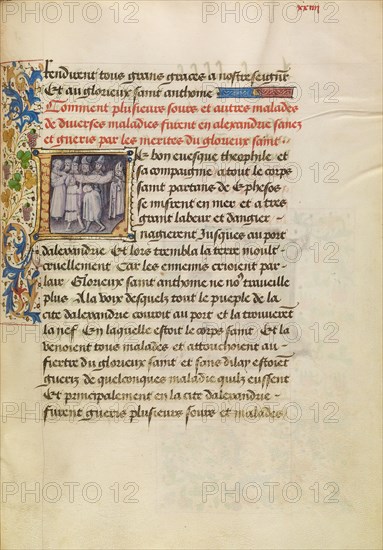 xxiiij
rendirent tous grans graces a nostre seigneur
Et au glorieux saint anthoine
Comment plusieurs sours et autres malades
de diverses maladies furent en alexandrie sanez
et gueris par les merites du glorieux saint
Le bon evesque theophile et
sa compaignie a tout le corps
saint partans de Ephesos
se misrent en mer et a tres
grant labeur et dangier
nagierent Jusques au port
dalexandrie Et lors trembla la terre moult
cruellement Car les ennemis crioient par
lair Glorieux saint anthoine ne no9 traveille
plus A la voix desquelz tout le pueple de la
cite dalexandrie couroit au port et la trouverent
la nef En laquelle estoit le corps saint Et la
venoient tous malades et attouchoient au
fiertre du glorieux saint et sans dilay estoient
gueris de quelconques maladie quilz eussent
Et principalement en la cite dalexandrie
furent gueris plusieurs sours et malades
PHOTO 12